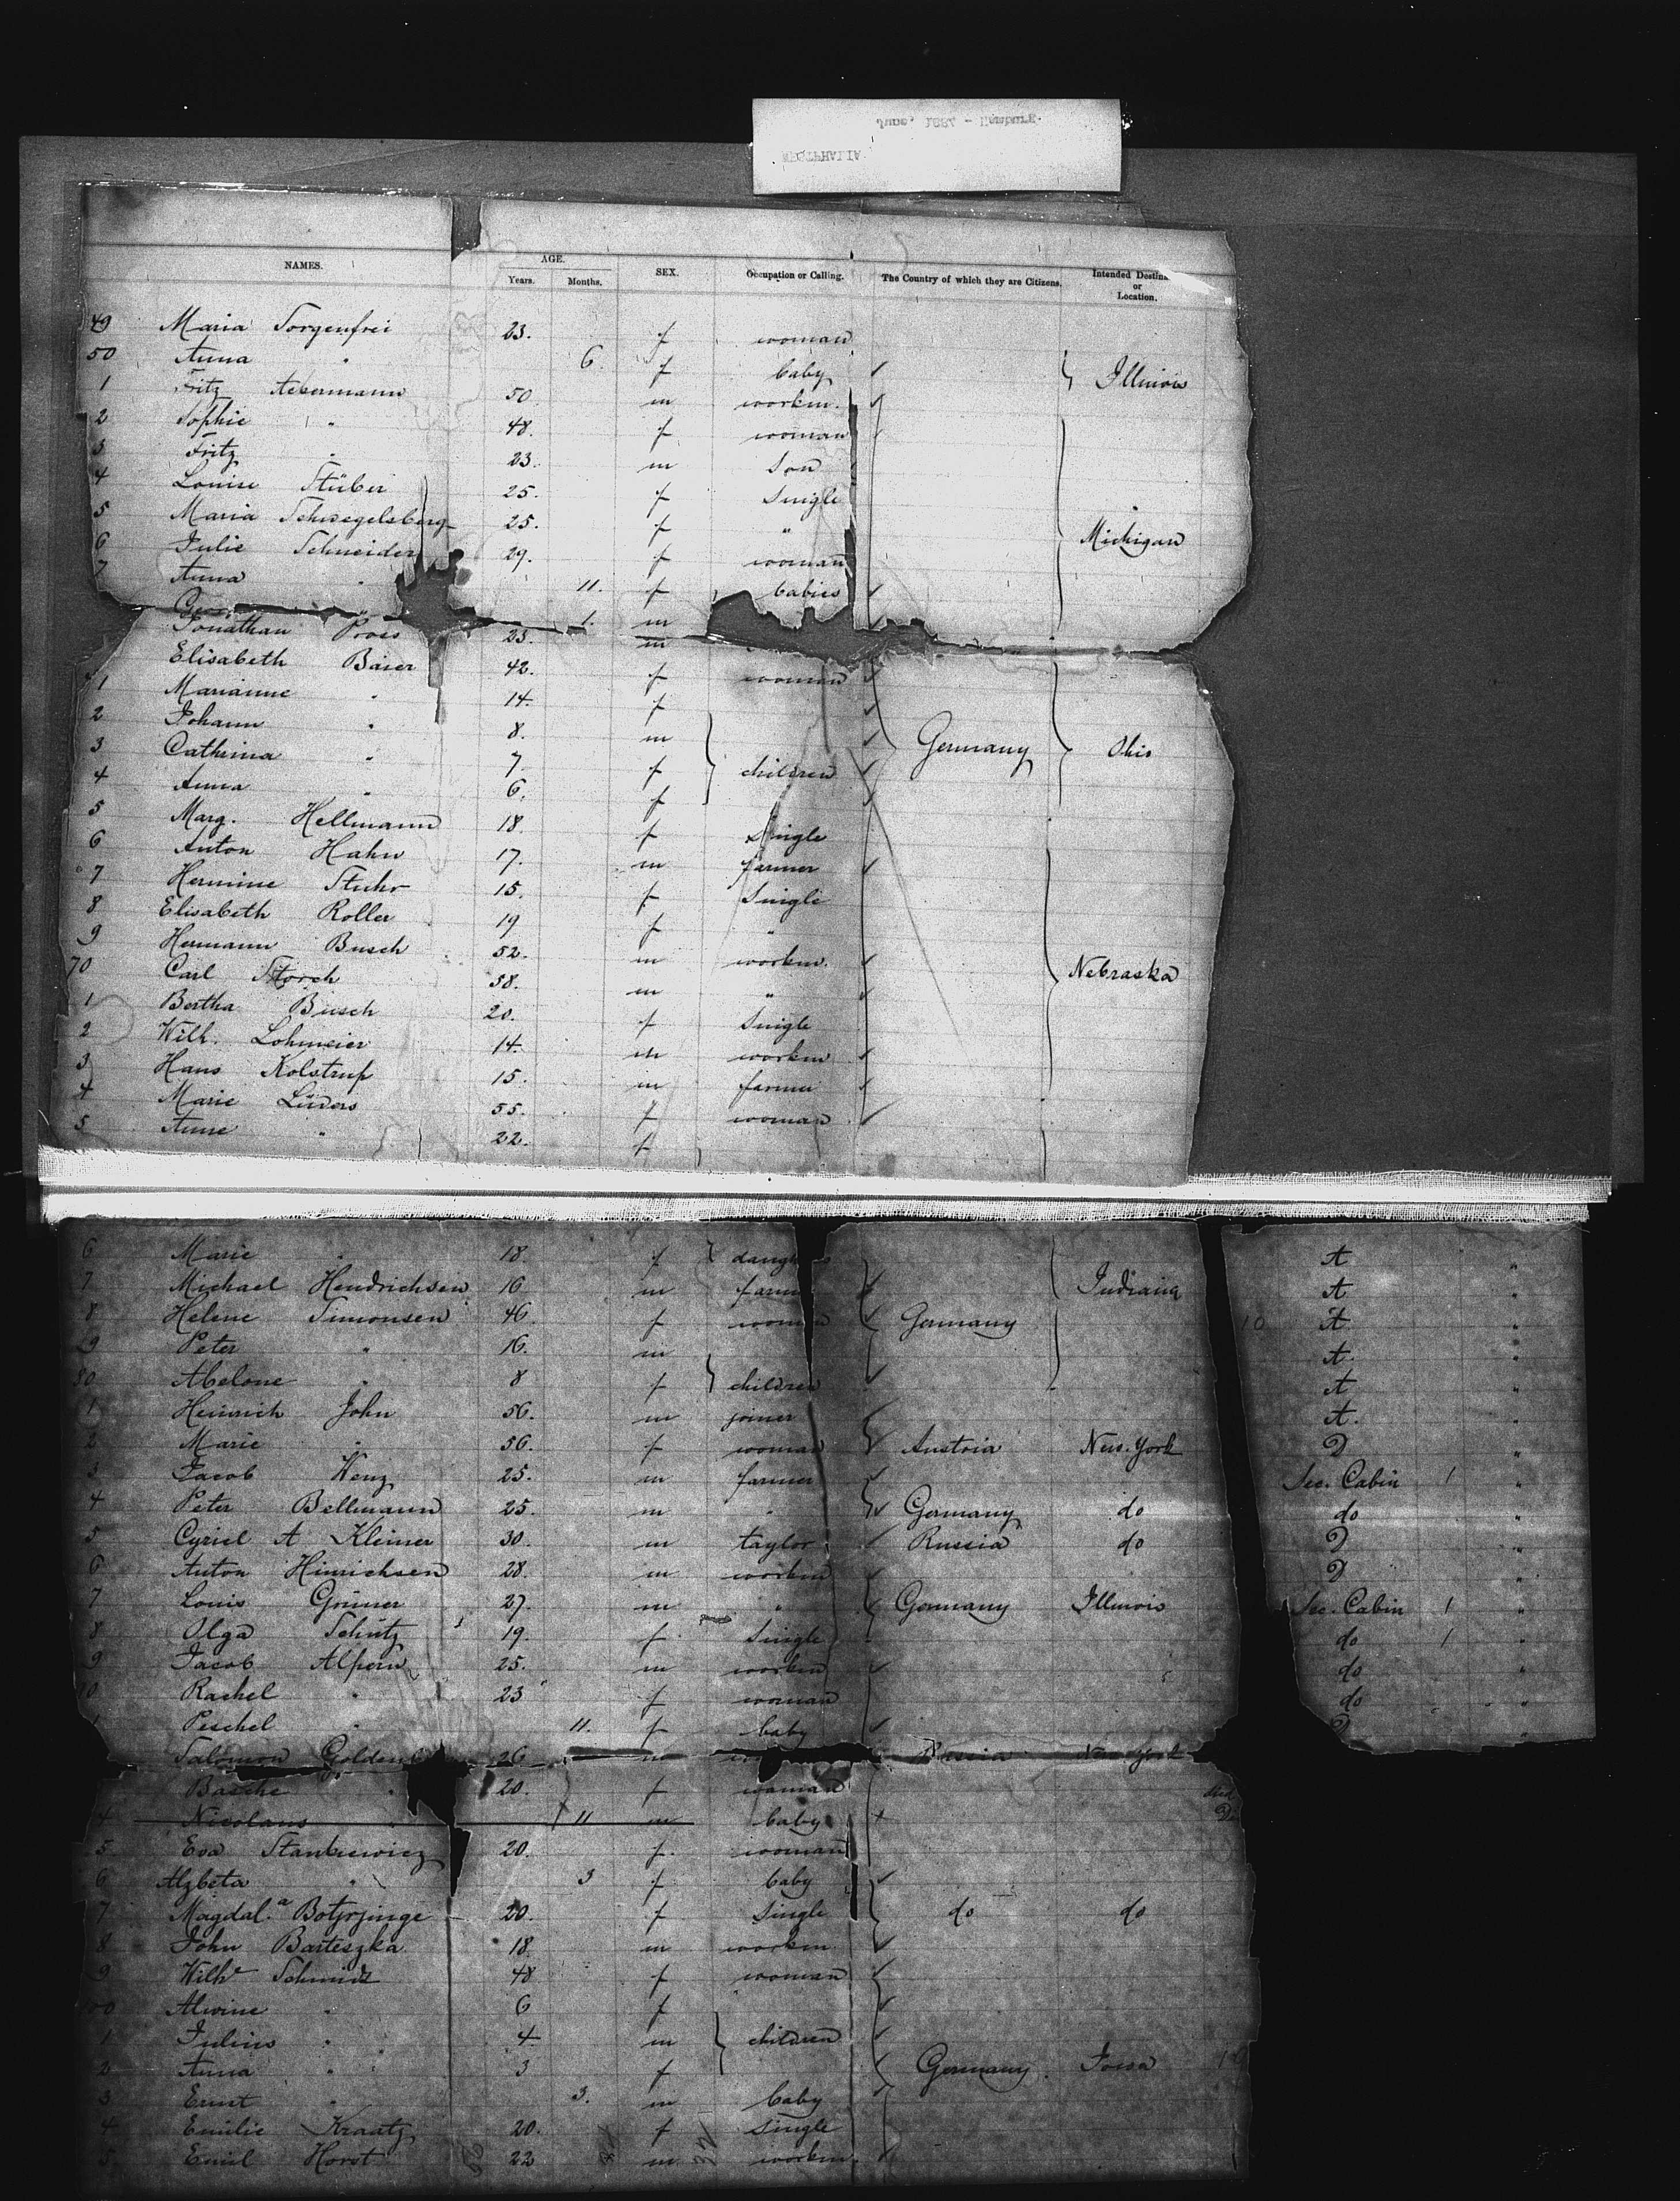 June, 1887 - Hamburg.
WESTPHALIA
NAMES. AGE. Years. Months. SEX. Occupation or Calling. The Country of which they are Citizens. Intended Destina or Location.
49 Maria Sorgenfrei 23. f woman
50 Anna " 6. f baby Illinois
1 Fritz Ackermann 50. m workm.
2 Sophie " 48. f woman
3 Fritz " 23. m Son
4 Louise Stüber 25. f Single
5 Maria Schwegelsberg 25. f " Michigan
6 Julie Schneider 29. f woman
7 Anna " 11. f babies
" 1. m
Jonathan Pross 23. m
Elisabeth Baier 42. f woman
1 Marianne " 14. f
2 Johann " 8. m Germany Ohio
3 Cathrina " 7. f children
4 Anna " 6. f
5 Marg. Hellmann 18. f Single
6 Anton Hahn 17. m farmer
7 Hermine Stuhr 15. f Single
8 Elisabeth Roller 19 f "
9 Hermann Busch 52. m workm.
70 Carl Storch 58. m " Nebraska
1 Bertha Busch 20. f Single
2 Wilh. Lohmeier 14. m workm
3 Hans Kolstrup 15. m farmer
4 Marie Lüders 55. f woman
5 Anne " 22. f
6 Marie " 18. f A "
7 Michael Hendrichsen 16 m Indiana A "
8 Helene Simonsen 46. f woman Germany 10 A "
9 Peter " 16. m A. "
80 Abelone " 8 f children A "
1 Heinrich John 56. m joiner A. "
2 Marie " 56. f woman Austria New-York "
3 Jacob Wenz 25. m farmer Sec. Cabin 1 "
4 Peter Bellmann 25. m " Germany do do "
5 Cyriel A Kleiner 30. m taylor Russia do "
6 Anton Hinrichsen 28. m workm "
7 Louis Grüner 27. m " Germany Illinois Sec. Cabin 1 "
8 Olga Schütz 19. f Single do 1 "
9 Jacob Alpern 25. m workm do "
10 Rachel " 23 f woman do "
1 Peschel " 11. f baby "
Salomon 26 m Russia New York
Basche " 20. f woman
4 Nicolaus " 11 m baby died
5. Eva Stankiewicz 20. f. woman
6 Alzbeta " 3 f baby
7 Magdal.a Botjrjinge 20. f Single do do
8 John Barteszka 18. m workm
9 Wilhe Schmidt 48 f woman
100 Alwine " 6 f
1 Julius " 4 m children
2 Anna " 3 f Germany. Iowa
3 Ernst " 3. m baby
4 Emilie Kraatz 20. f Single
5. Emil Horst 22 m workm.